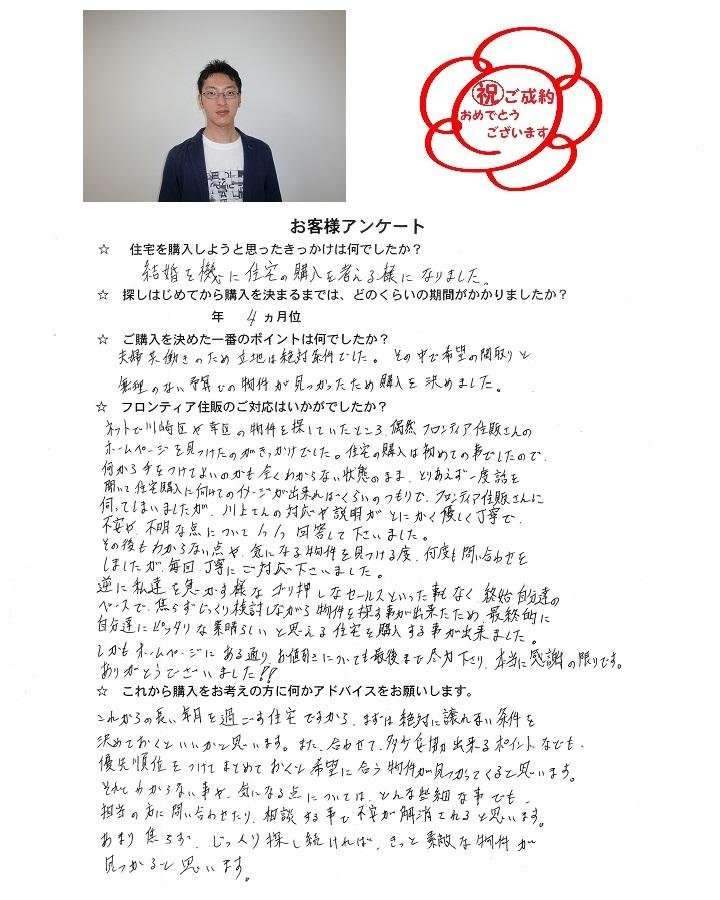 祝ご成約
おめでとう
ございます
お客様アンケート
☆ 住宅を購入しようと思ったきっかけは何でしたか?
結婚を機に住宅の購入を考える様になりました。
☆ 探しはじめてから購入を決まるまでは、どのくらいの期間がかかりましたか?
年 4ヵ月位
☆ ご購入を決めた一番のポイントは何でしたか?
夫婦共働きのため立地は絶対条件でした。その中で希望の間取りと
無理のない予算での物件が見つかったため購入を決めました。
☆ フロンティア住販のご対応はいかがでしたか?
ネットで川崎区や幸区の物件を探していたところ、偶然フロンティア住販さんの
ホームページを見つけたのがきっかけでした。住宅の購入は初めての事でしたので、
何から手をつけてよいのかも全くわからない状態のまま、とりあえず一度話を
聞いて住宅購入に向けてのイメージが出来ればくらいのつもりで、フロンティア住販さんに
伺ってしまいましたが、川上さんの対応や説明がとにかく優しく丁寧で、
不安や、不明な点について1つ1つ回答して下さいました。
その後もわからない点や、気になる物件を見つける度、何度も問い合わせを
しましたが毎回丁寧にご対応下さいました。
逆に私達を焦かす様なゴリ押しなセールスといった事もなく、終始自分達の
ペースで、焦らずじっくり検討しながら物件を探す事が出来たため、最終的に
自分達にピッタリな素晴らしいと思える住宅を購入する事が出来ました。
しかもホームページにある通り、お値引きについても最後まで尽力下さり、本当に感謝の限りです。
ありがとうございました!!
☆ これから購入をお考えの方に何かアドバイスをお願いします。
これからの長い年月を過ごす住宅ですから、まずは絶対に譲れない条件を
決めておくといいかと思います。また、合わせて、多少妥協出来るポイントなども、
優先順位をつけてまとめておくと希望に合う物件が見つかってくると思います。
それとわからない事や、気になる点については、どんな些細な事でも、
担当の方に問い合わせたり、相談する事で不安が解消されると思います。
あまり焦らず、じっくり探し続ければ、きっと素敵な物件が
見つかると思います。